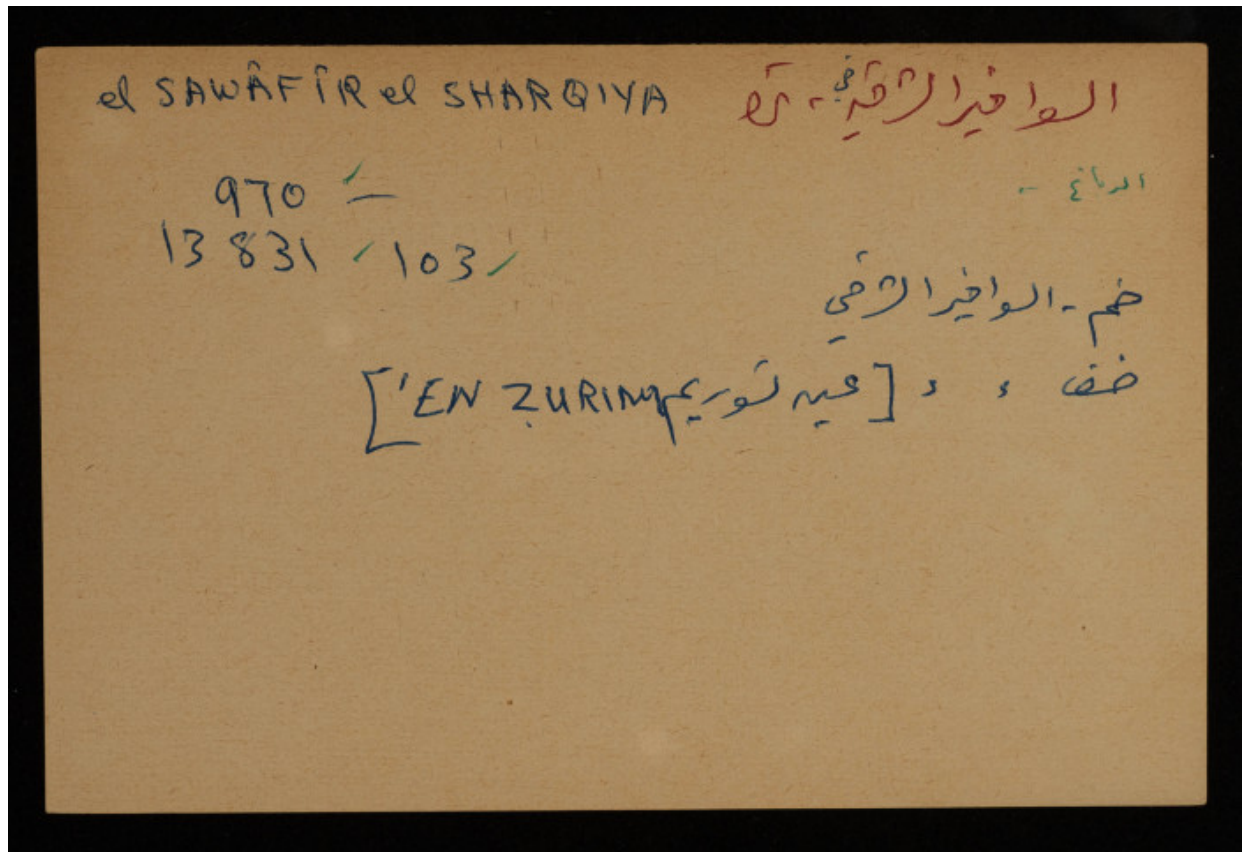 el SAWÂFÎR el SHARQIYA السوافير الشرقية - قرية
970 -
13 831 / 103
خم - السوافير الشرقي
ضف ء ء [عين تسوريم 'EN ZURIM]